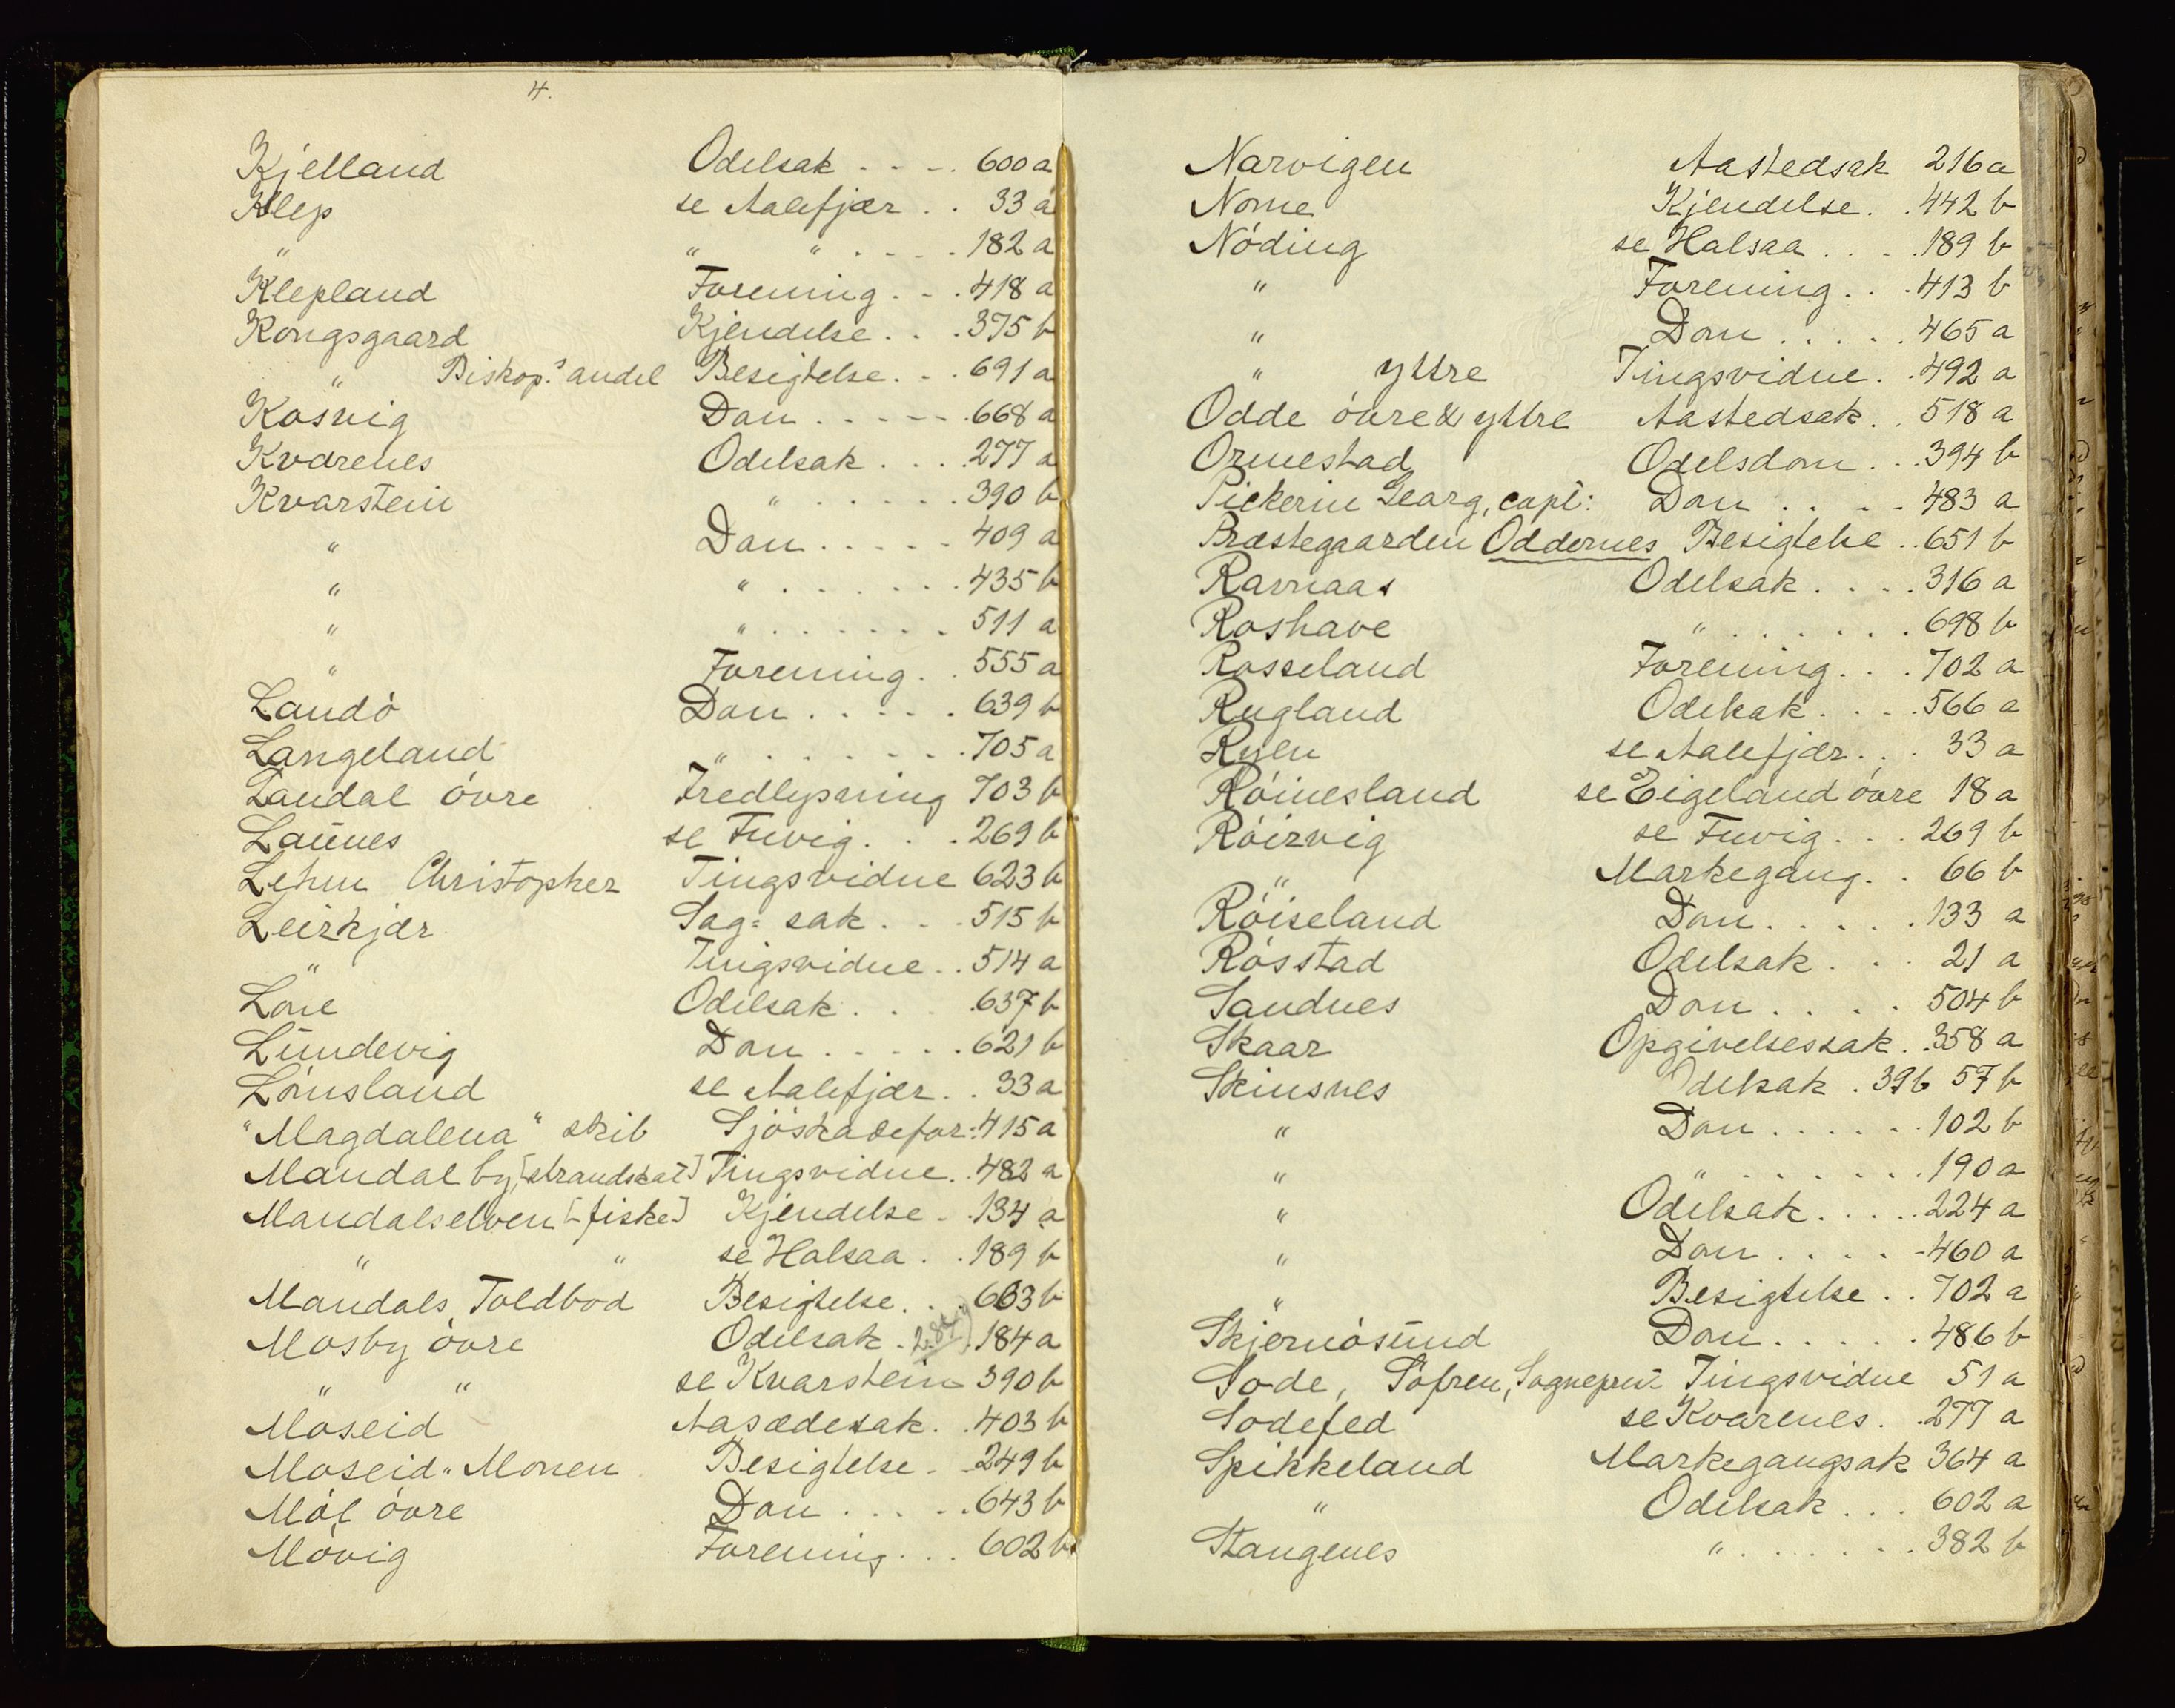 4.
Kjelland Odelsak . . . . 600 a
Klep se Aalefjær . . 33 a
" " " . . . . 182 a
Klepland Forening . . . 418 a
Kongsgaard Kjendelse . . . 375 b
" Biskop.s andel Besigtelse . . . 691 a
Kosvig Dom . . . . . 668 a
Kvarenes Odelsak . . . . 277 a
Kvarstein " . . . . . . 390 b
" Dom . . . . . 409 a
" " . . . . . . . 435 b
" " . . . . . . . 511 a
" Forening . . 555 a
Landö Dom . . . . . 639 b
Langeland " . . . . . . . 705 a
Laudal övre Fredlysning 703 b
Launes se Fuvig . . . 269 b
Lehm Christopher Tingsvidne 623 b
Leirkjær Sag= sak . . . 515 b
" Tingsvidne . . 514 a
Lone Odelsak . . . . 637 b
Lundevig Dom . . . . . 621 b
Lönnsland se Aalefjær . . 33 a
"Magdalena" skib Sjöskadefor: 415 a
Mandal by, [strandskat] Tingsvidne . . 482 a
Mandalselven [-fiske] Kjendelse . . 134 a
" " se Halsaa . . 189 b
Mandals Toldbod Besigtelse . . . 663 b
Mosby övre Odelsak . 184 a
" " se Kvarstein 390 b
Moseid Aasædesak . . 403 b
Moseid-Monen Besigtelse . . 249 b
Möl övre Dom . . . . . 643 b
Mövig Forening . . . 602 b
Narvigen Aastedsak 216 a
Nome Kjendelse . . 442 b
Nöding se Halsaa . . . . 189 b
" Forening . . . 413 b
" Dom . . . . . 465 a
" yttre Tingsvidne . . 492 a
Odde övre & yttre Aastedsak . . 518 a
Ormestad Odelsdom . . . 394 b
Pickerin Georg, capt: Dom . . . . 483 a
Præstegaarden Oddernes Besigtelse . . 651 b
Ravnaas Odelsak . . . . 316 a
Roshave " . . . . . . . 698 b
Rosseland Forening . . . 702 a
Rugland Odelsak . . . . 566 a
Ryen se Aalefjær . . . 33 a
Röinesland se Eigeland övre 18 a
Röirvig se Fuvig . . . 269 b
" Markegang . . 66 b
Röiseland Dom . . . . . 133 a
Rösstad Odelsak . . . 21 a
Sandnes Dom . . . . 504 b
Skaar Opgivelsessak . . 358 a
Skinsnes Odelsak . 39 b 57 b
" Dom . . . . . . 102 b
" " . . . . . . . 190 a
" Odelsak . . . . . 224 a
" Dom . . . . . 460 a
" Besigtelse . . 702 a
Skjernösund Dom . . . . . 486 b
Sode, Söfren, Tingsvidne 51 a
Sodefed se Kvarenes . . 277 a
Spikkeland Markegangsak 364 a
" Odelsak . . . 602 a
Stangenes " . . . . . . . 382 b